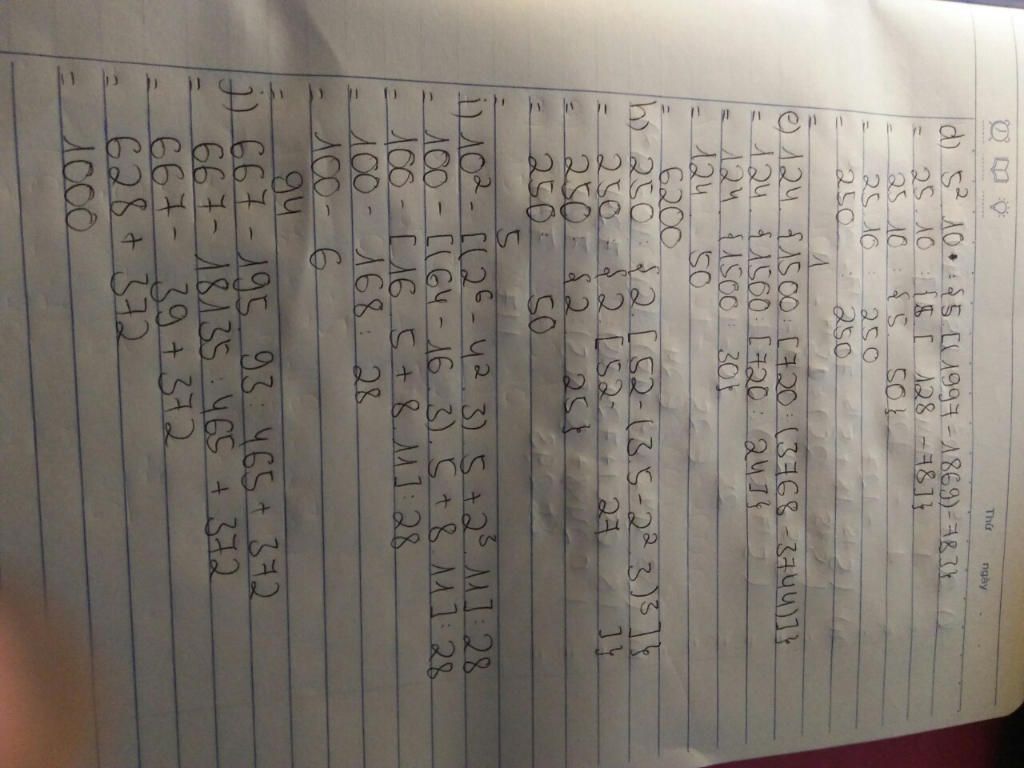 Thứ ngày
d) 5² 10 : {5 [(1997 - 1869) - 78]}
= 25. 10 : {5 [ 128 - 78]}
= 25. 10 : {5 50}
= 25. 10 : 250
= 250 : 250
= 1
e) 124. {1500 : [720 : (3768 - 3744)]}
= 124. {1500 : [720 : 24]}
= 124. {1500 : 30}
= 124. 50
= 6200
h) 250 : {2 [52 - (3 5 - 2² 3)³]}
= 250 : {2 [52 - 27 ]}
= 250 : {2 25}
= 250 : 50
= 5
i) 10² - [(2⁶ - 4² 3) 5 + 2³ 11] : 28
= 100 - [(64 - 16 3). 5 + 8 11] : 28
= 100 - [16 5 + 8 11] : 28
= 100 - 168 : 28
= 100 - 6
= 94
j) 667 - 195 93 : 465 + 372
= 667 - 18135 : 465 + 372
= 667 - 39 + 372
= 628 + 372
= 1000